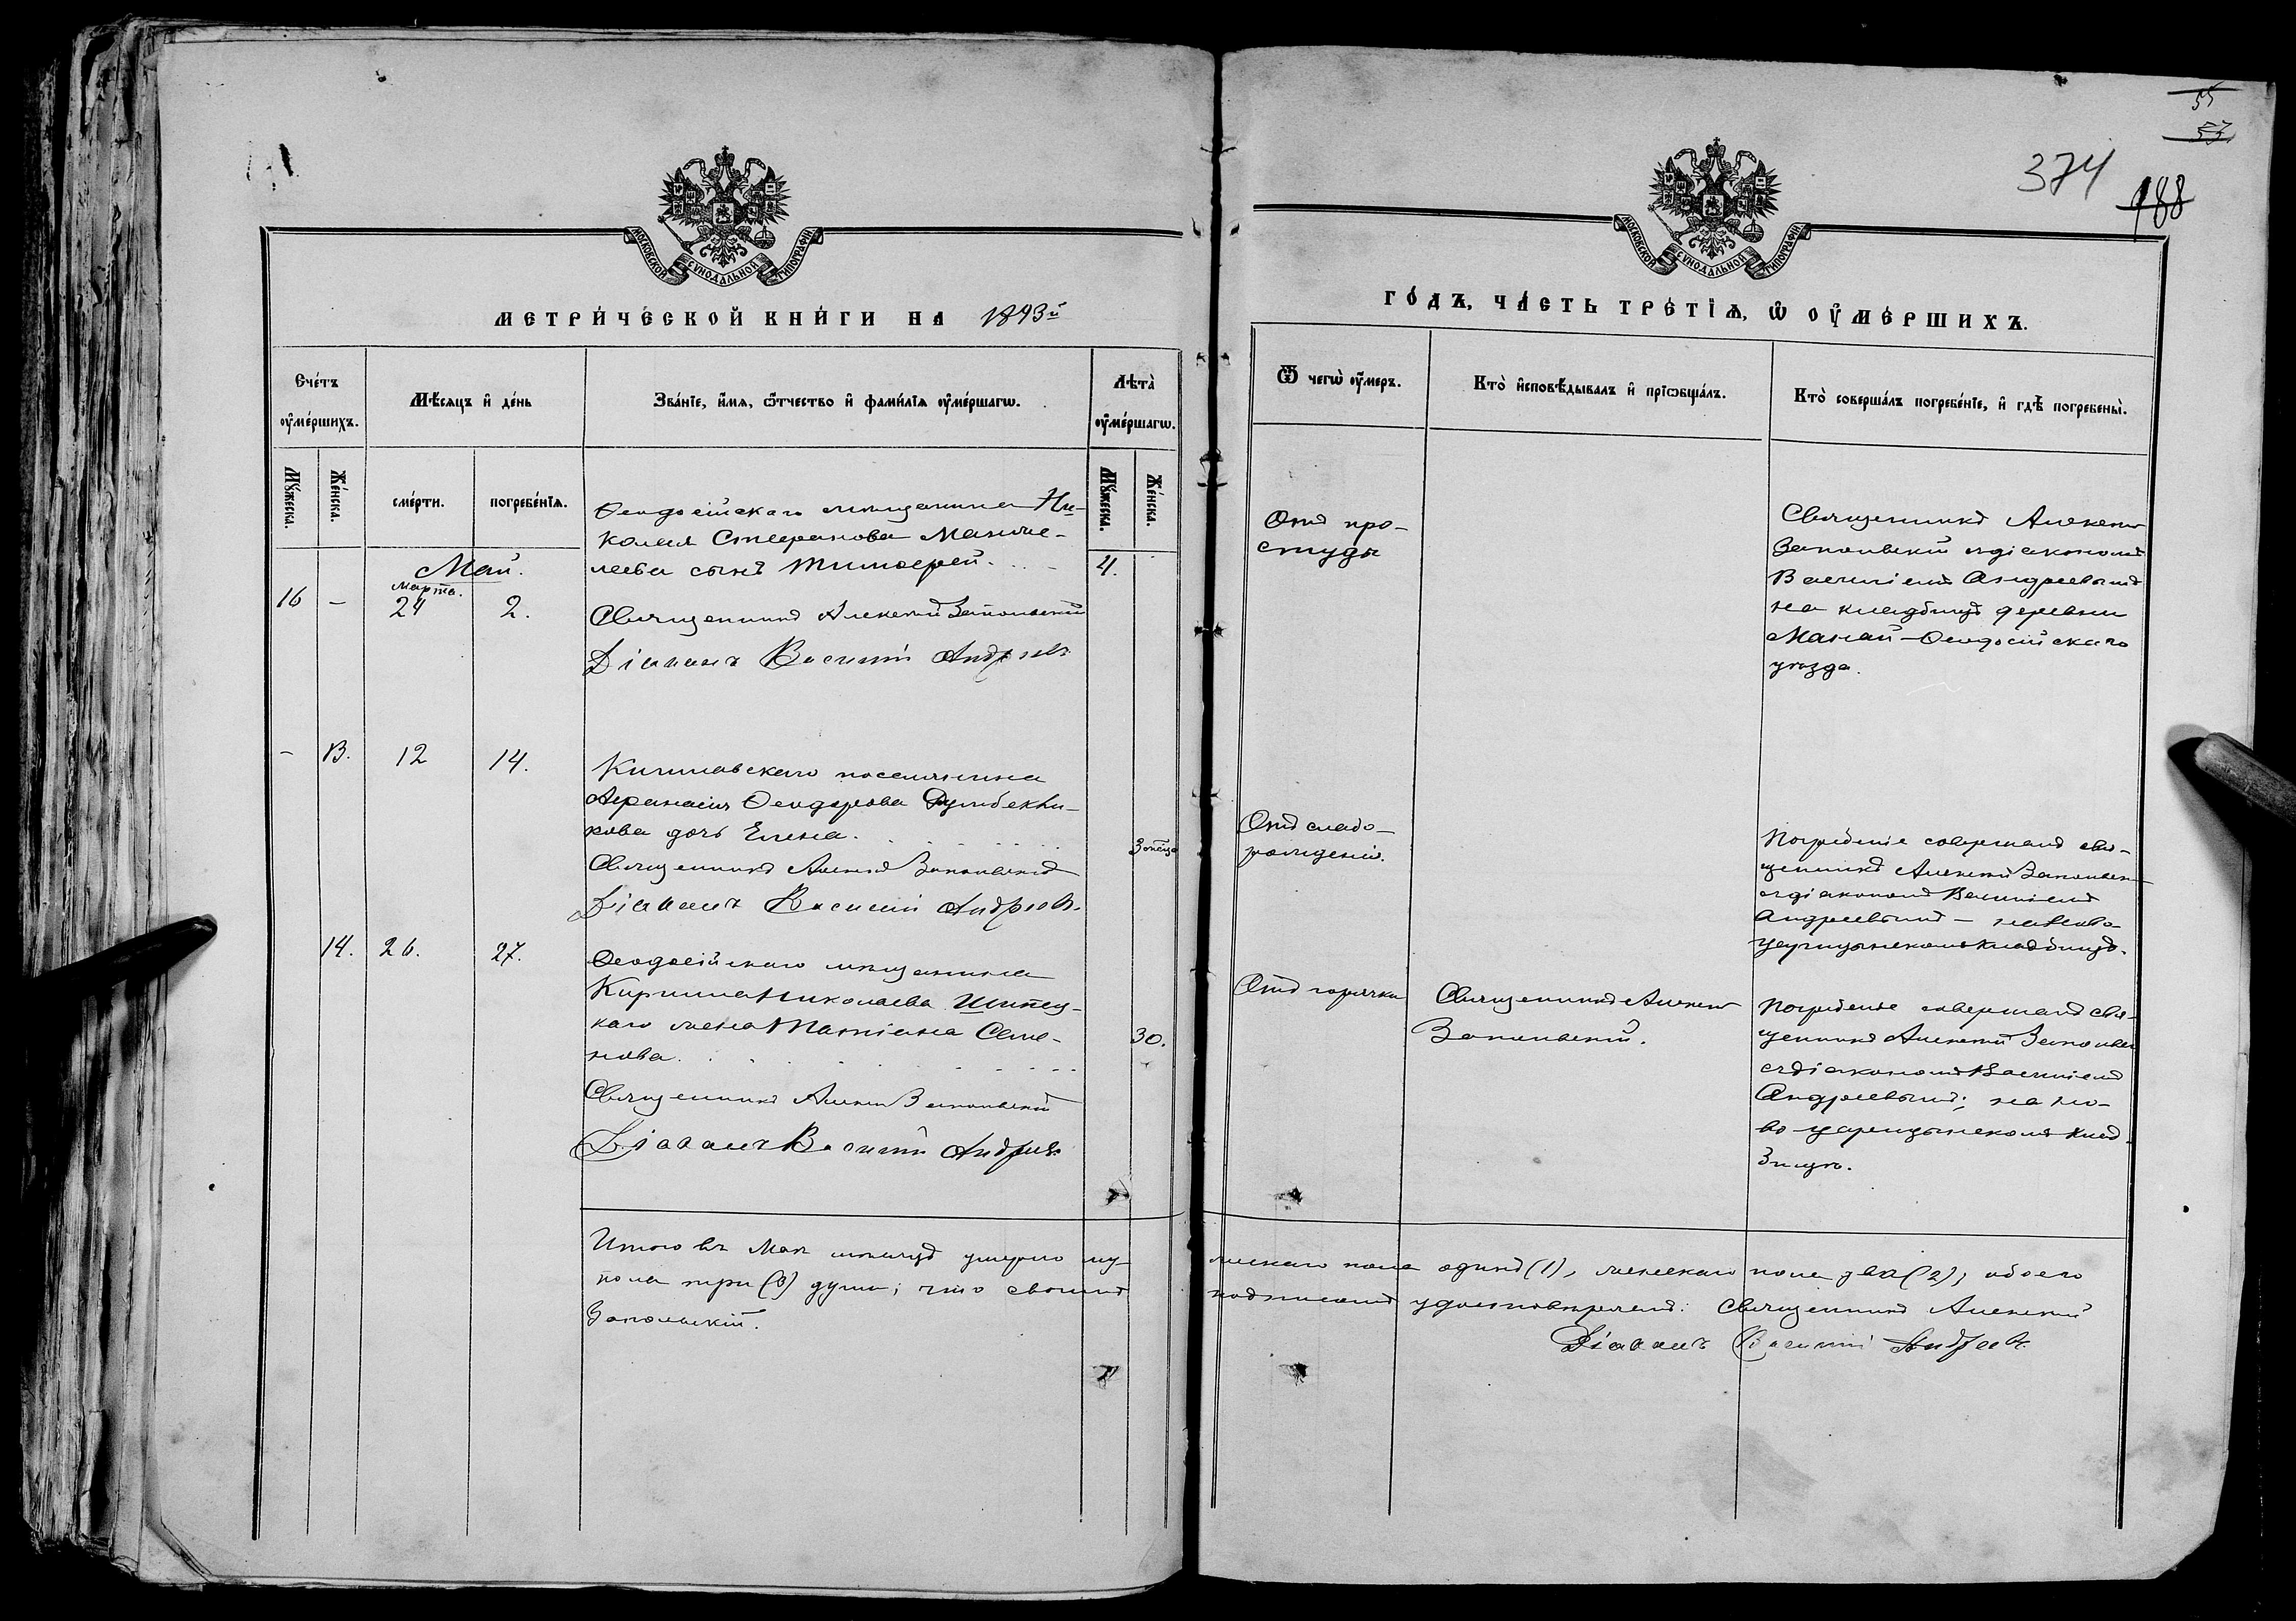 55
53
374
188
МОСКОВСКОЙ СѴНОДАЛЬНОЙ ТИПОГРАФІИ
МЕТРИ́ЧЕСКОЙ КНИ́ГИ НА 1893й
Сче́тъ ᲂу҆ме́ршихъ.
Мѣ́сѧцъ и҆ де́нь
Зва́нїе, и҆́мѧ, ѻ҆́тчество и҆ фами́лїѧ ᲂу҆ме́ршагѡ.
Лѣта̀ ᲂу҆ме́ршагѡ.
Мꙋ́жеска.
Же́нска.
сме́рти.
погребе́нїѧ.
Мꙋ́жеска.
Же́нска.
Май.
Марта.
16 - 24 2.
Ѳеодосійскаго мѣщанина Ни-
колая Стефанова
сынъ Тимофей. 4.
Священникъ Алексій Запольскій
Діаконъ Василій Андреевъ
- 13. 12 14.
поселянина
Афанасія Ѳеодорова
кова дочь Елена.
Священникъ Алексій Запольскій
Діаконъ Василій Андреевъ.
14. 26. 27.
Ѳеодосійскаго мѣщанина
Кирилла Николаева
каго жена Татіана Семе-
нова. 30.
Священникъ Алексій Запольскій
Діаконъ Василій Андреевъ
Итого въ Маѣ мѣсяцѣ умерло му-
пола три (3) души; что своимъ
Запольскій.
МОСКОВСКОЙ СѴНОДАЛЬНОЙ ТИПОГРАФІИ
ГО́ДЪ, ЧА́СТЬ ТРЕ́ТЇѦ, Ѡ҆ ОУ҆МЕ́РШИХЪ.
Ѿ чегѡ̀ ᲂу҆́меръ.
Кто̀ и҆сповѣ́дывалъ и҆ прїѡбща́лъ.
Кто̀ соверша́лъ погребе́нїе, и҆ гдѣ̀ погребены̀.
Отъ про-
студы
Священникъ Алексій
Запольскій съ діакономъ
Василіемъ Андреевымъ
на кладбищѣ деревни
Манай-Ѳеодосійскаго
уѣзда.
Отъ слабо-
рожденія.
Погребеніе совершалъ свя-
щенникъ Алексій Запольскій
съ діакономъ Василіемъ
Андреевымъ - на Ново-
царицынскомъ кладбищѣ.
Отъ горячки
Священникъ Алексій
Запольскій.
Погребеніе совершалъ свя-
щенникъ Алексій Запольскій
съ діакономъ Василіемъ
Андреевымъ; на Но-
во-царицынскомъ клад-
бищѣ.
жескаго пола одинъ (1), женскаго пола два (2); обоего
подписомъ удостовѣряемъ: Священникъ Алексій
Діаконъ Василій Андреевъ.